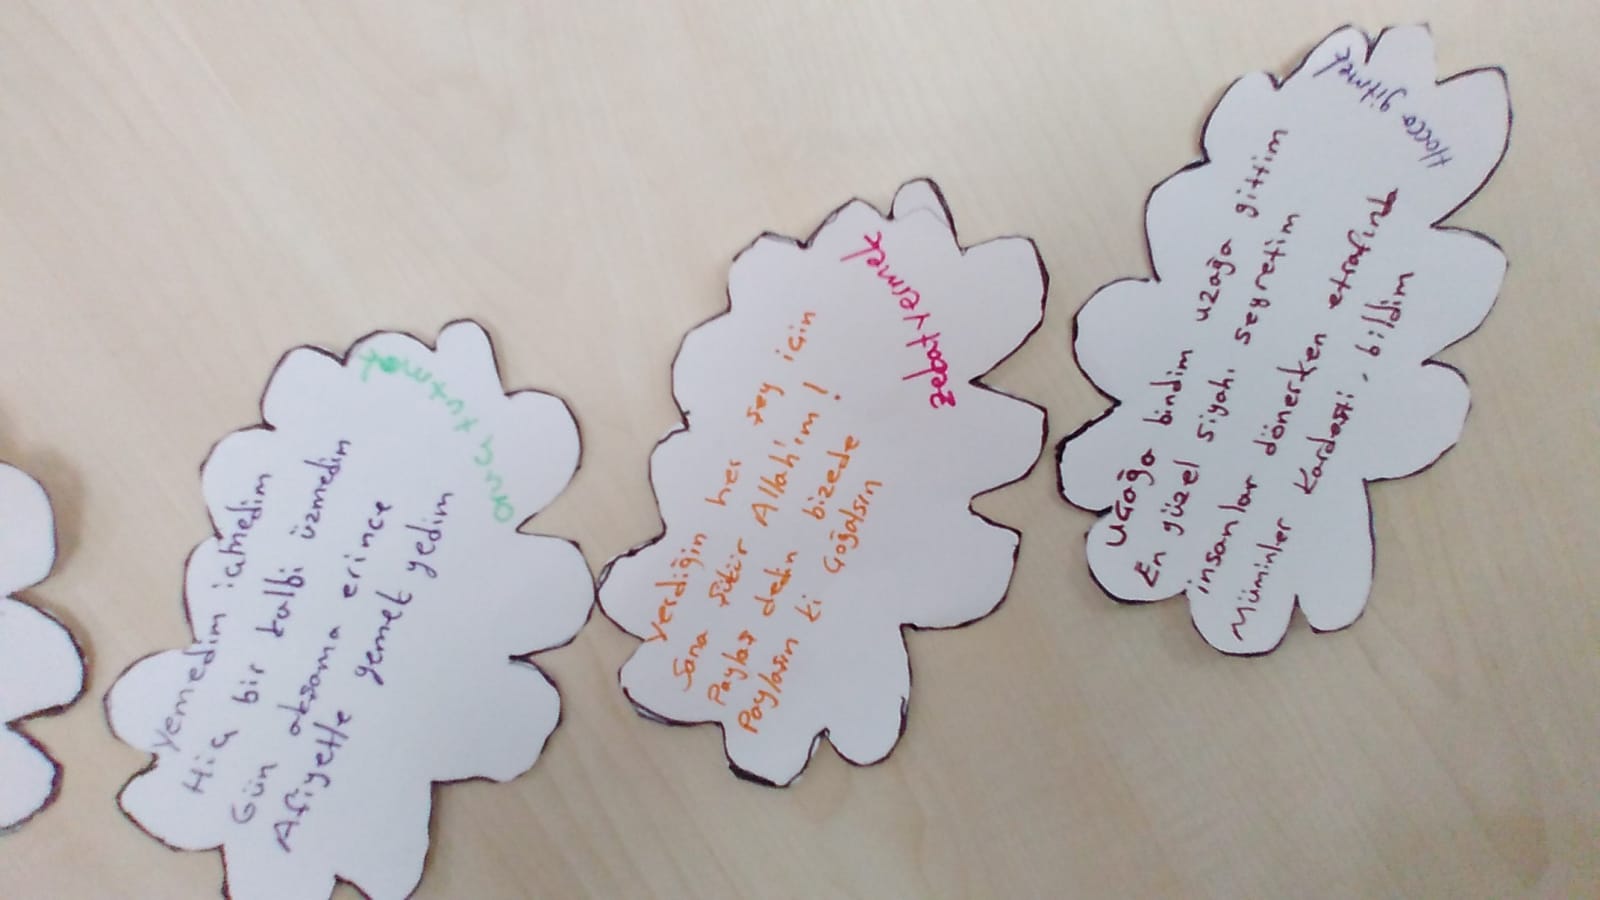 oruç tutmak
Yemedim içmedim
Hiç bir kalbi üzmedim
Gün akşama erince
Afiyetle yemek yedim
zekat vermek
Verdiğin her şey için
Sana şükür Allahım!
Paylaş dedin bizede
Paylaşın ki çoğalsın
Hacca gitmek
Uçağa bindim uzağa gittim
En güzel siyahı seyretim
insanlar dönerken etrafında
Müminler kardeşti, bildim